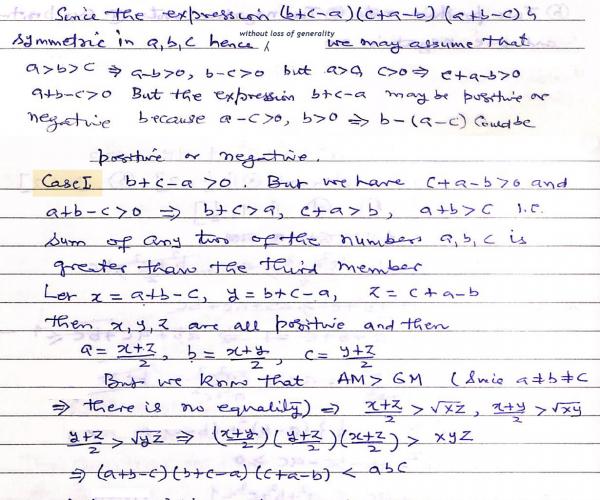 Since the expression (b+c-a)(c+a-b)(a+b-c) is
symmetric in a,b,c hence, without loss of generality we may assume that
a>b>c ⇒ a-b>0, b-c>0 but a>0, c>0 ⇒ c+a-b>0
a+b-c>0 But the expression b+c-a may be positive or
negative because a-c>0, b>0 ⇒ b-(a-c) could be
positive or negative.
Case I b+c-a>0. But we have c+a-b>0 and
a+b-c>0 ⇒ b+c>a, c+a>b, a+b>c i.e.
Sum of any two of the numbers a,b,c is
greater than the third member
Let x = a+b-c, y = b+c-a, z = c+a-b
then x,y,z are all positive and then
a = (x+z)/2, b = (x+y)/2, c = (y+z)/2
But we know that AM > GM (Since a≠b≠c
⇒ there is no equality) ⇒ (x+z)/2 > √xz, (x+y)/2 > √xy
(y+z)/2 > √yz ⇒ ((x+y)/2)((y+z)/2)((x+z)/2) > xyz
⇒ (a+b-c)(b+c-a)(c+a-b) < abc